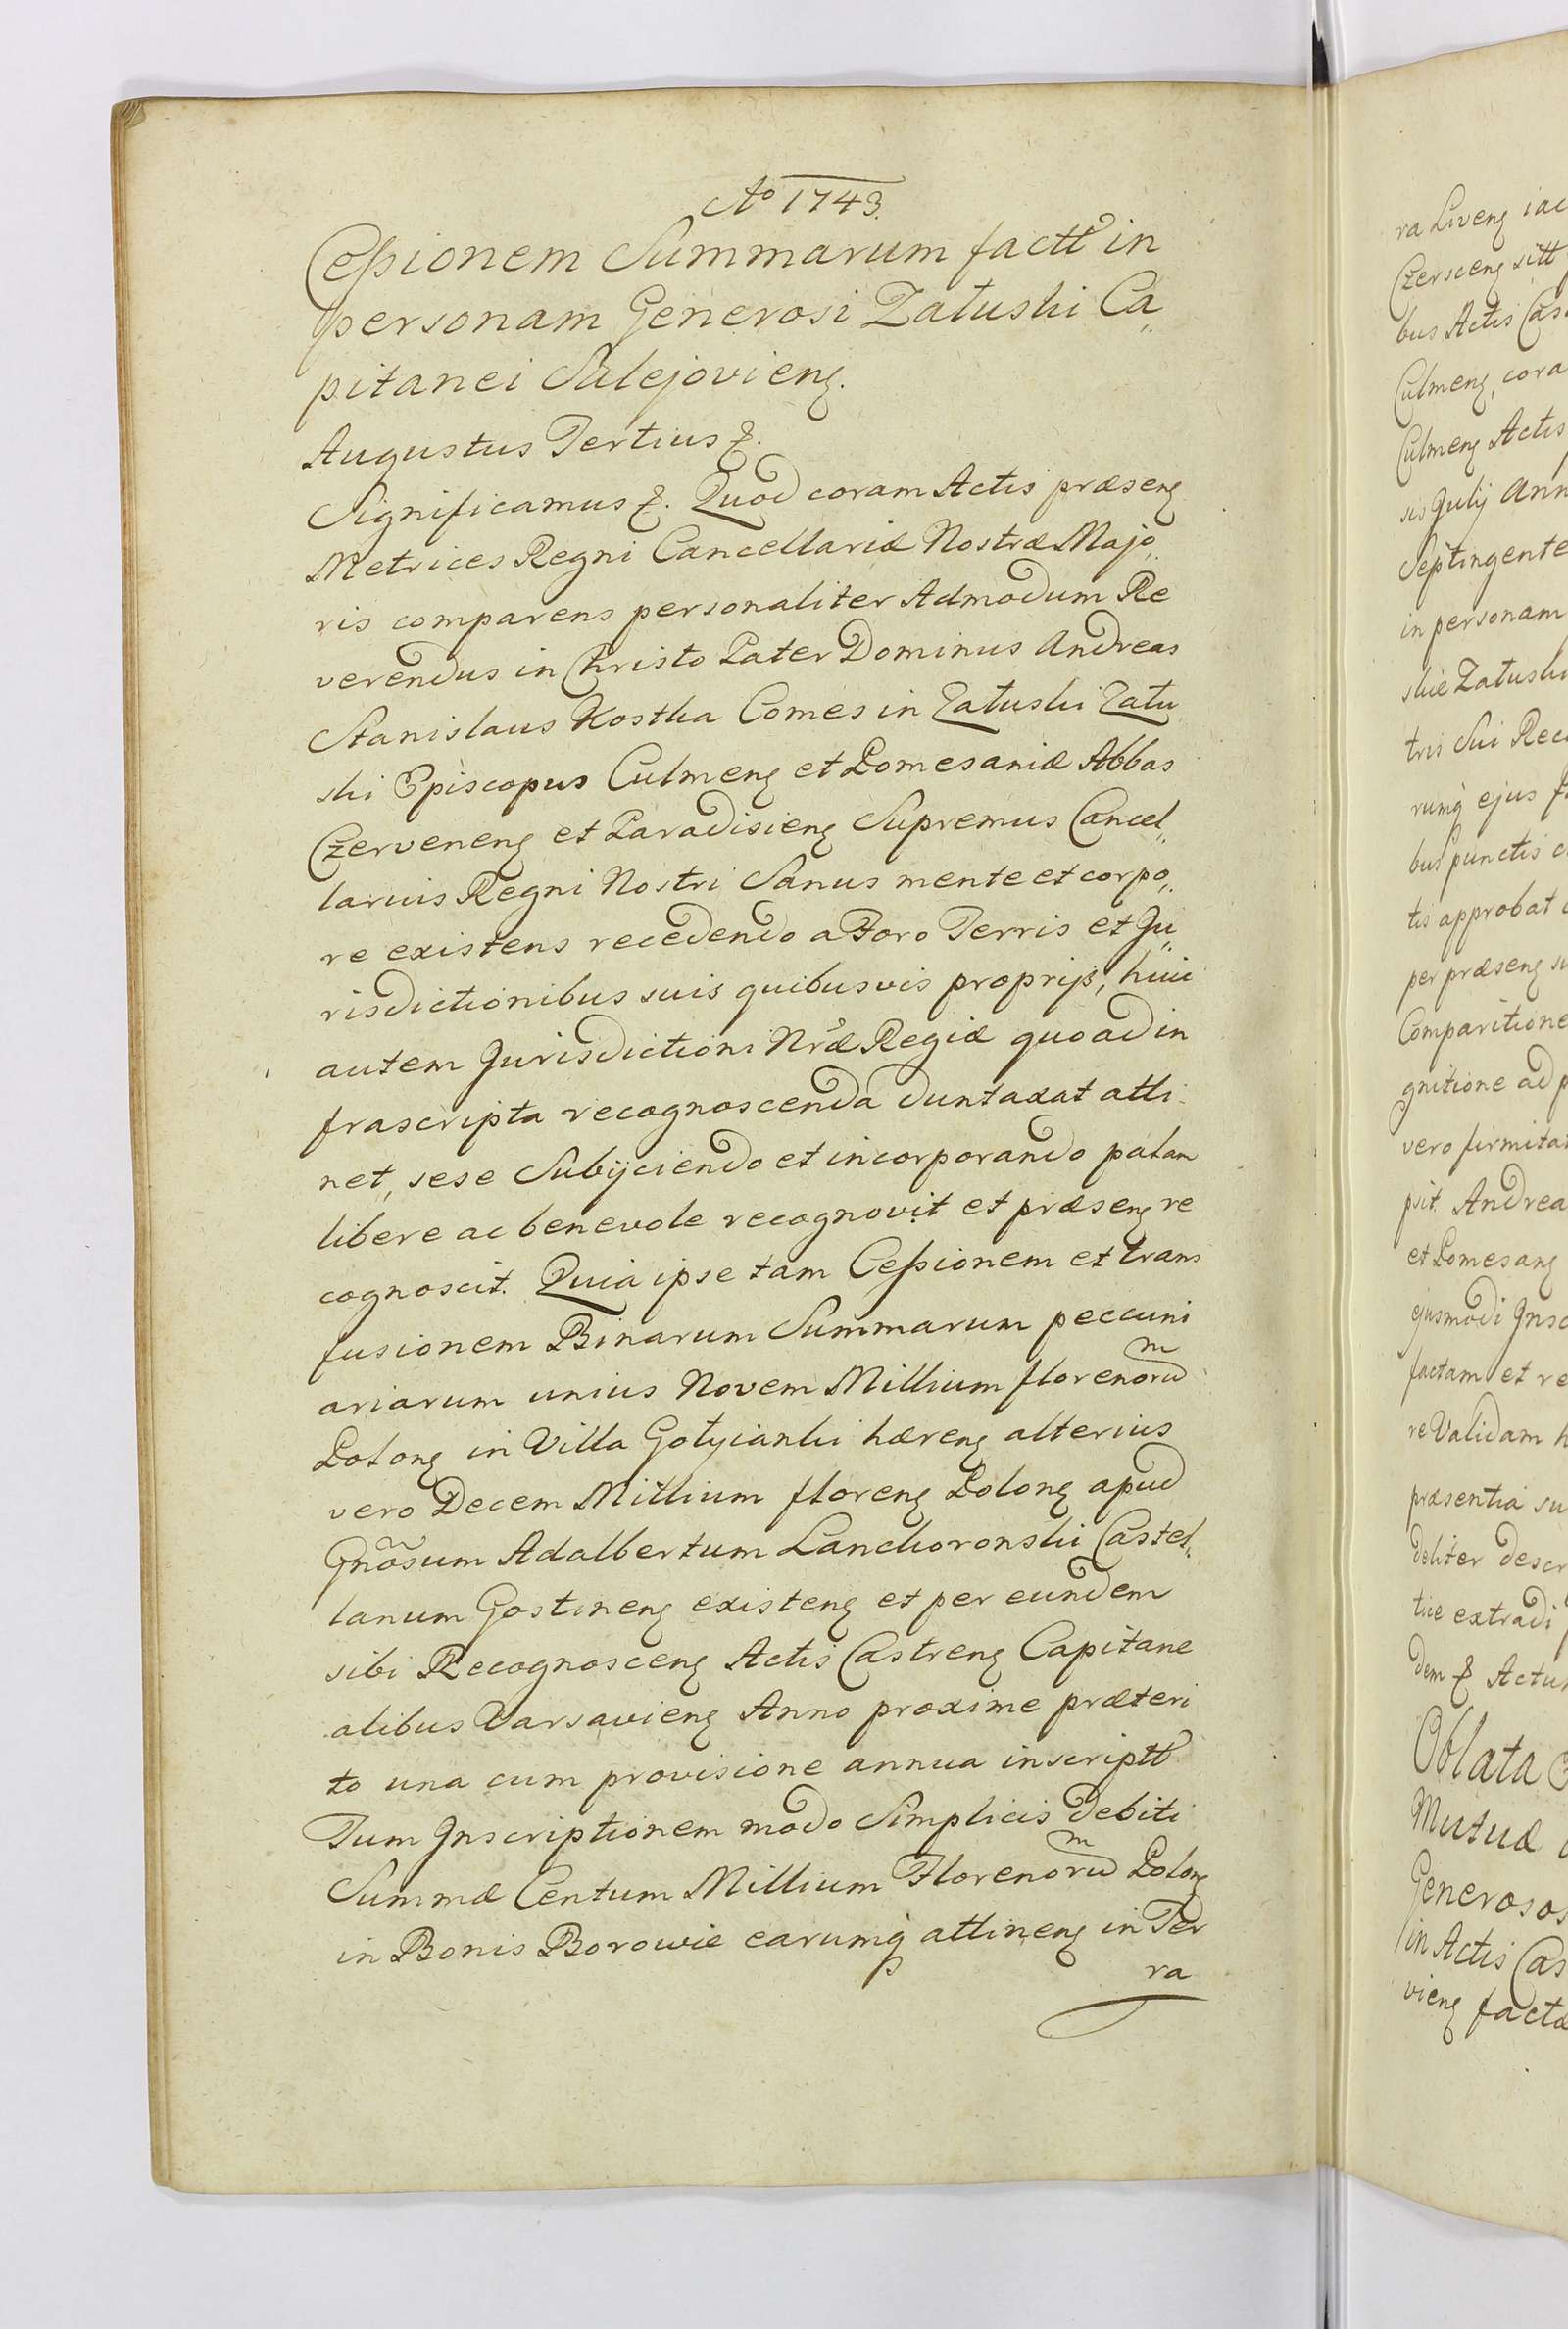 Ao 1743.
Cessionem Summarum factt in
personam Generosi Załuski Ca„
pitanei Sulejovieng.
Augustus Tertius &.
Significamus &. Quod coram Actis præseng
Metrices Regni Cancellariæ Nostræ Majo„
ris comparens personaliter Admodum Re
verendus in Christo Pater Dominus Andreas
Stanislaus Kostka Comes in Załuski Zału
ski Episcopus Culmeng et Pomesaniæ Abbas
Czerveneng et Paradisieng Supremus Cancel„
larius Regni Nostri Sanus mente et corpo„
re existens recedendo a Foro Terris et Ju„
risdictionibus suis quibusvis proprijs, huic
autem Jurisdictioni Nræ Regiæ quoad in
frascripta recognoscenda duntaxat atti
net, sese Subijciendo et incorporando palam
libere ac benevole recognovit et præseng re
cognoscit. Quia ipse tam Cessionem et trans
fusionem Binarum Summarum peccuni
ariarum unius Novem Millium florenorum
Polong in Villa Gołyianki hæreng alterius
vero Decem Millium floreng Polong apud
Gnosum Adalbertum Lanckoronski Castel„
lanum Gostineng existeng et per eundem
sibi Recognosceng Actis Castreng Capitane
alibus Varsavieng Anno proxime præteri
to una cum provisione annua inscriptt
Tum Inscriptionem modo Simplicis debiti
Summæ Centum Millium Florenorum Polong
in Bonis Borowie earumq attineng in Ter
ra
ra Liveng iac
Czersceng sitt
bus Actis Cas
Culmeng, cora
Culmeng Actis
sis Julij Ann
Septingente
in personam
skie Załuski
tris Sui Rec
rumq ejus
bus punctis c
tis approbat
per præseng su
Comparitione
gnitione ad p
vero firmita
psit. Andrea
et Pomesang
ejusmodi Insc
factam et re
re Validam h
præsentia su
deliter descr
tice extradi
dem & Actu
Oblata
Mutuæ
Generosos
in Actis Cas
vieng factæ